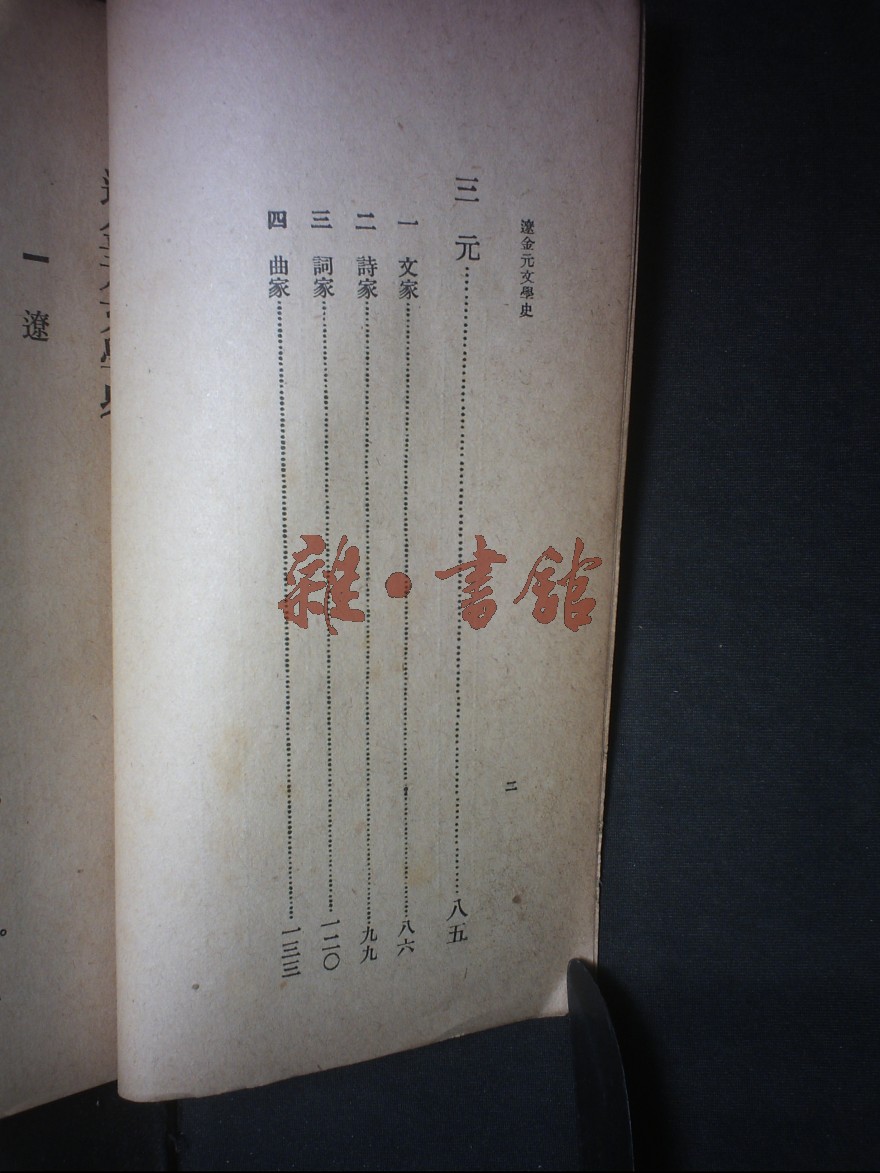 遼金元文學史
二
三　元……八五
一　文家……八六
二　詩家……九九
三　詞家……一二〇
四　曲家……一三三
一　遼
雜・書館